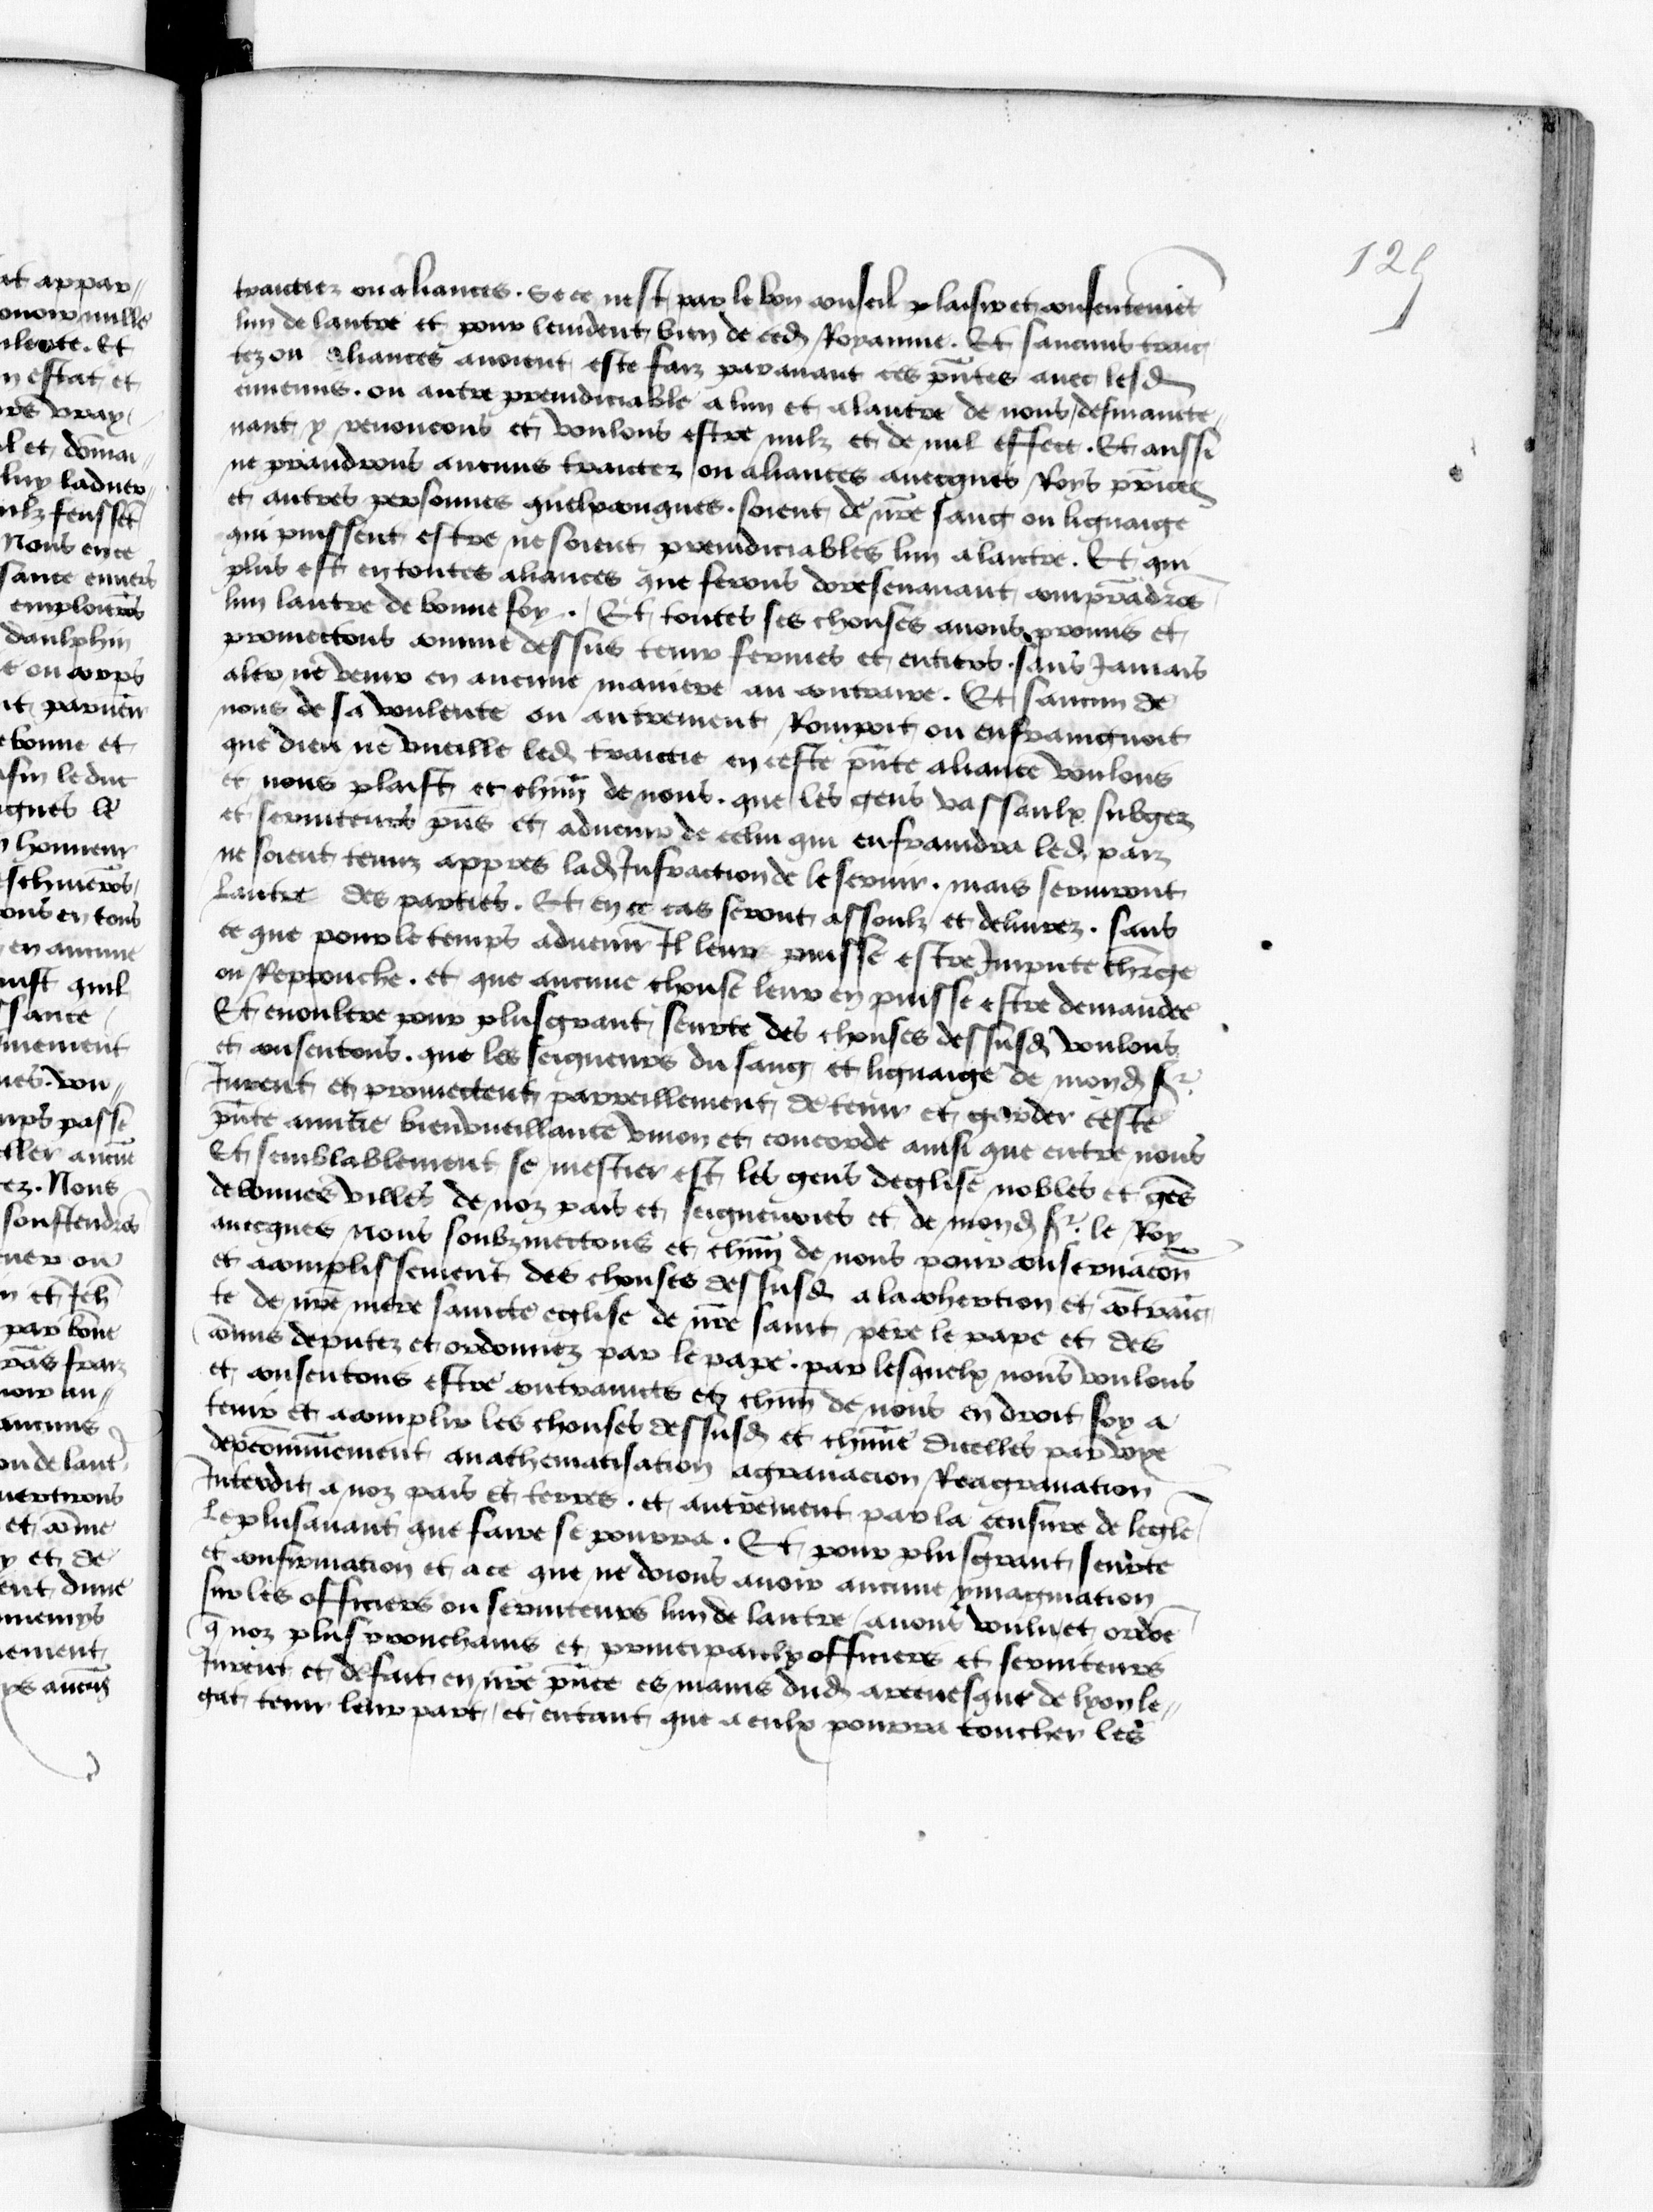 125
traictiez ou aliances. Se ce nest par le bon conseil plaisir et consentemēt
lun de lautre et pour leuident bien de ced Royaume. Et saucuns traic
tez ou aliances auoient este faiz parauant ces pñtes auec lesd
ennemis. ou autre preiudiciable a lun et a lautre de nous / desmainte"
nant y renoncons et voulons estre nulz et de nul effect. Et aussi
ne prandrons aucuns traictez ou aliances auecques Roys princes
et autres personnes quelxconques. soient de nr̄e sang ou lignaige
qui puissent estre ne soient preiudiciables lun a lautre. Et qui
plus est en toutes aliances que ferons doresenauant comprādrōs
lun lautre de bonne foy. / Et toutes ses chouses auons promis et
promectons comme dessus tenir fermes et entiers. sans Jamais
aler ne venir en aucune maniere au contraire. Et saucun de
nous de sa voulente ou autrement Rompoit ou enfraingnoit
que dieu ne vueille led traictie en ceste pñte aliance voulons
et nous plaist et chūn de nous. que les gens vassaulx subgez
et seruiteurs pñs et aduenir de celui qui enfraindra led paiz
ne soient tenuz appres lad Infraction de le seruir. mais seruiront
Lautre des parties. Et en ce cas seront assoulz et deliurez. sans
ce que pour le temps aduenir Il leur puisse estre Impute charge
ou Reprouche. et que aucune chouse leur en puisse estre demandee
Et enoultre pour plusgrant seurte des chouses dessusd voulons
et consentons. que les seigneurs du sang et lignaige de mond sr
Jurent et promectent parreillement de tenir et garder ceste
pñte amitie bienvueillance vnion et concorde ainsi que entre nous
Et semblablement se mestier est les gens deglise nobles et gēs
de bonnes villes de noz pais et seigneuries et de mond sr. le Roy
auecques Nous soubzmectons et chūn de nous pour conseruacōn
et acomplissement des chouses dessusd a la cohertion et cōtrainc
te de nr̄e mere saincte eglise de nr̄e saint pere le pape et des
cōmis deputez et ordonnez par le pape. par lesquelx nous voulons
et consentons estre contraincts et chūn de nous en droit soy a
tenir et acomplir les chouses dessusd et chūne dicelles par voye
dexcōmūnement anathematisation agrauacion Reagrauation
Interdit a noz pais et terres. et autrement par la censure de legl̄e
Le plusauant que faire se pourra. Et pour plusgrant seurte
et confirmation et a ce que ne doions auoir aucune ymagination
sur les officiers ou seruiteurs lun de lautre / auons voulu et ordōe
q̄ noz plus prouchains et principaulx officiers et seruiteurs
Jurent et de fait en nr̄e pñce es mains dud arceuesque de lyon le"
gat tenir leur part / et entant que a eulx pourra toucher les